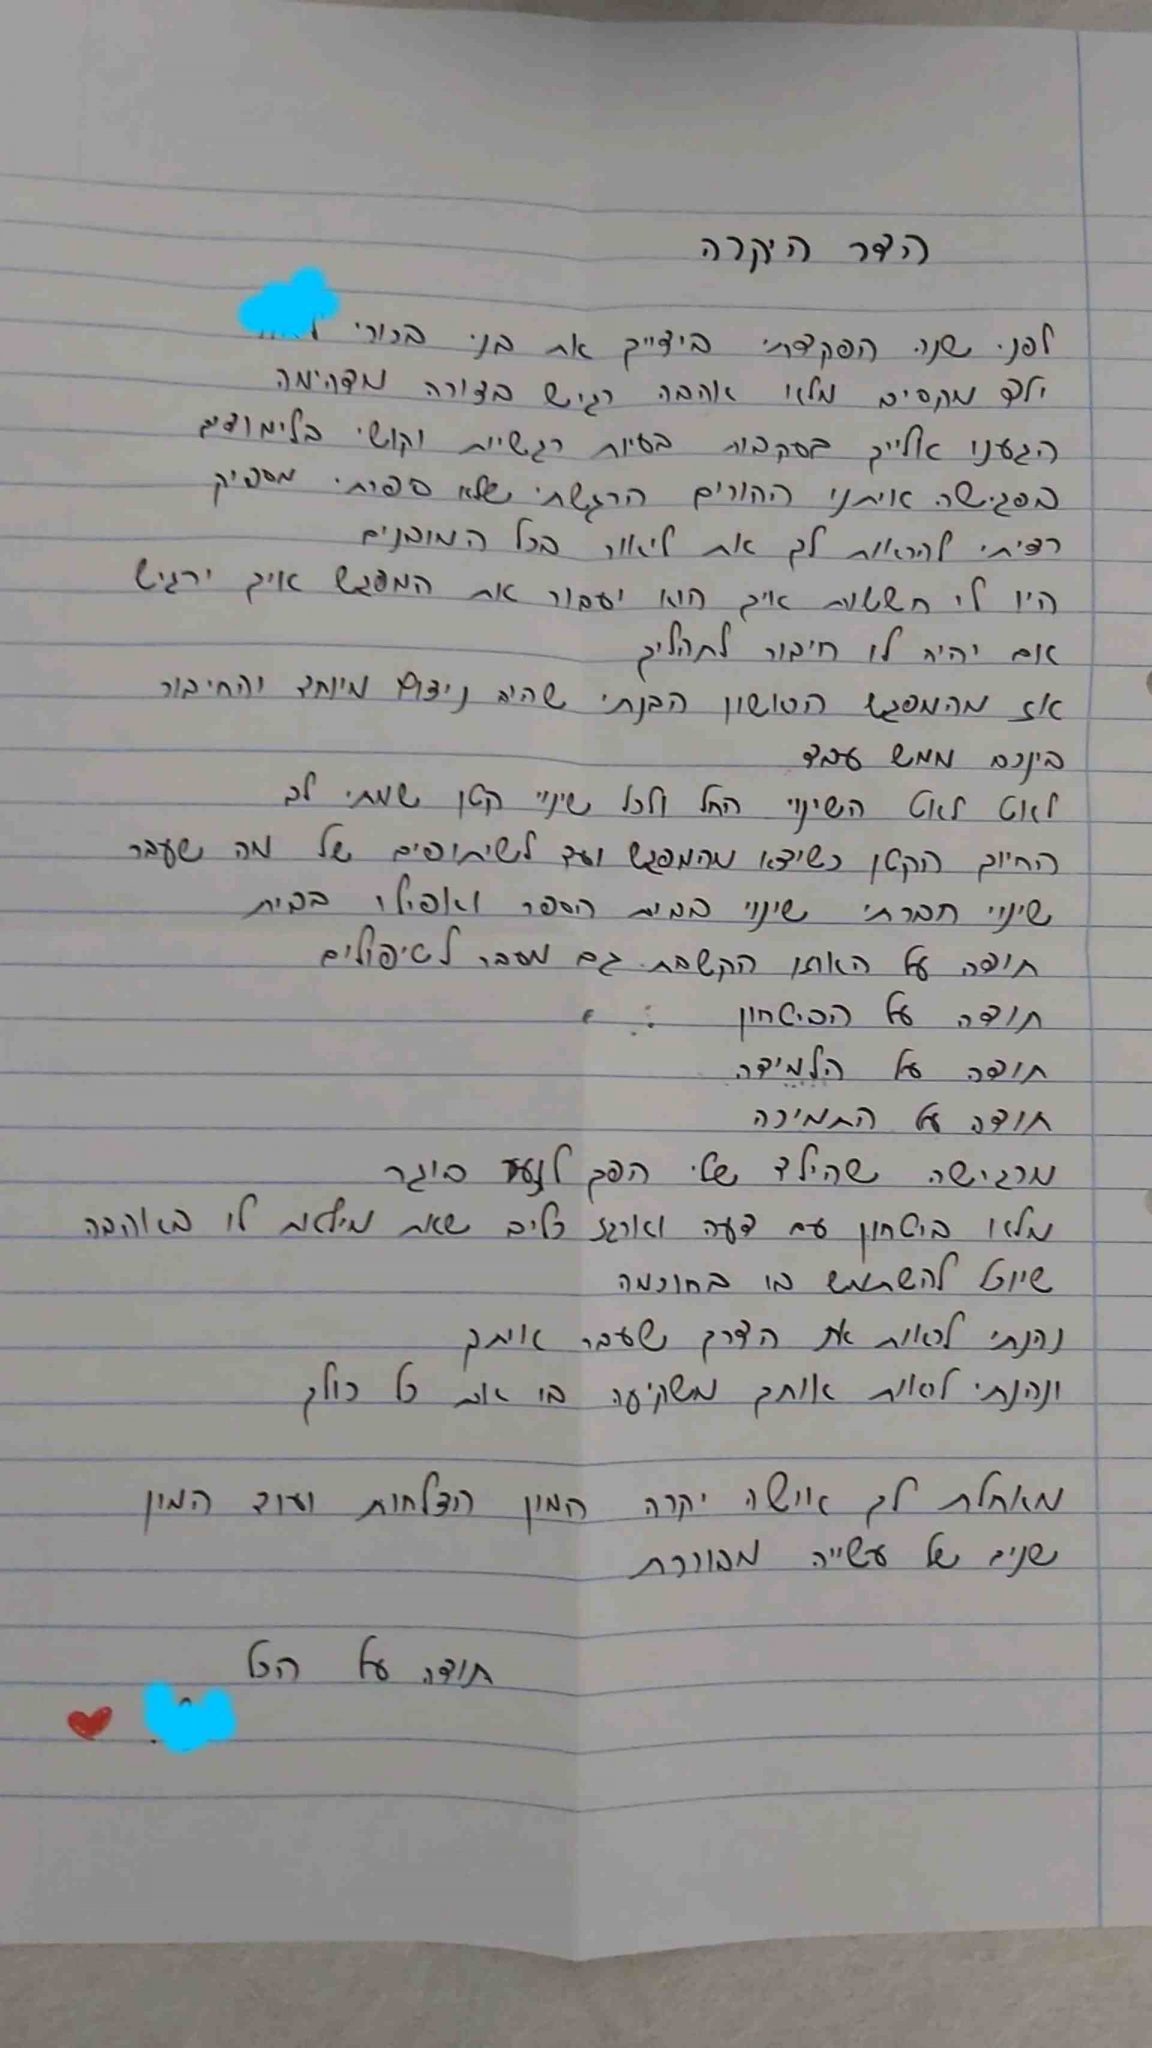 הדר היקרה
לפני שנה הפקדתי בידייך את בני בכורי
ילד מקסים מלאו אהבה רגיש בצורה מדהימה
הגענו אלייך בעקבות בעיות רגשיות וקושי בלימודים
בפגישה איתנו ההורים הרגשתי שלא ספרתי מספיק
רציתי להראות לך את ליאור בכל המובנים
היו לי חששות איך הוא יעבור את המפגש איך ירגיש
אם יהיה לו חיבור לתהליך
אז מהמפגש הראשון הבנתי שהיה ניצוץ מיוחד והחיבור
בינכם ממש עבד
לאט לאט השינוי החל ולכל שינוי קטן שמתי לב
החיוך הקטן כשיצא מהמפגש ועד לשיתופים של מה שעבר
שינוי חברתי שינוי בבית הספר ואפילו בבית
תודה על האוזן הקשבת גם מעבר לטיפולים
תודה על הביטחון
תודה על הלמידה
תודה על התמיכה
מרגישה שהילד שלי הפך לנער בוגר
מלאו ביטחון עם דעה וארגז כלים שאת מילאת לו באהבה
שיוכל להשתמש בו בחוכמה
נהנתי לראות את הדרך שעבר איתך
ונהנתי לראות אותך משקיעה בו את כל כולך
מאחלת לך אישה יקרה המון הצלחות ועוד המון
שנים של עשייה מבורכת
תודה על הכל